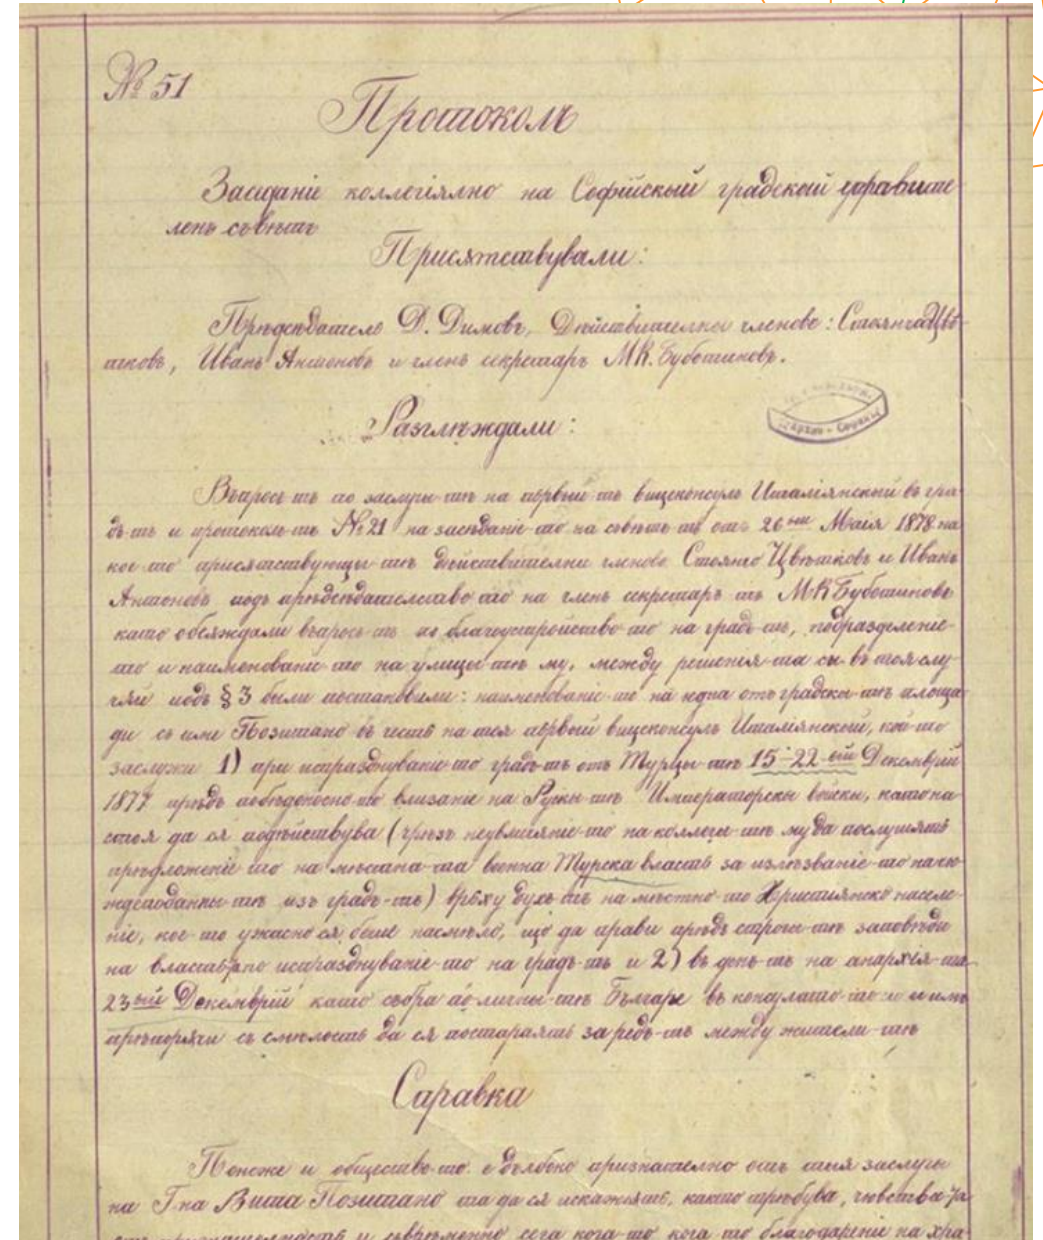 № 51
Протоколъ
Засѣданіе коллегіялно на Софійскый градскый управите
ленъ съвѣтъ
Присѫтствували:
Прѣдсѣдателъ Д. Димовъ, Дѣйствителны членове: Стоянчо Цвѣ-
тковъ, Иванъ Антоновъ и членъ секретарь М.К. Буботиновъ.
Разглѣждали:
Въпросъ-тъ по заслугы-тѣ на първый-тъ вицеконсулъ Италіянскый въ гра-
дъ-тъ и протоколъ-тъ № 21 на засѣданіе-то на съвѣтъ-тъ отъ 26ый Маія 1878 на
кое-то присѫтствующы-тѣ дѣйствителни членове Стоянчо Цвѣтковъ и Иванъ
Антоновъ подъ прѣдсѣдателство-то на членъ секретарь-тъ М.К Буботиновъ
като обсѫждали въпросъ-тъ по благоустройство-то на градъ-тъ, подразделеніе-
то и наименованіе-то на улицы-тѣ му, между решенія-та си въ тоя слу-
чяй подъ § 3 были постановили: наименованіе-то на една отъ градскы-тѣ площа
ди съ име Позитано въ честь на тоя първый вицеконсулъ Италіянскый, кой-то
заслужи 1) при испразднуваніе-то градъ-тъ отъ Турцы-тѣ 15-22-ый Декемврій
1877 прѣдъ побѣдоносно-то влизаніе на Русскы-тѣ Императорскы войскы, като на
стоя да ся подѣйствува (чрѣзъ неувлияніе-то на коллегы-тѣ му да послушатъ
прѣдложеніе-то на мѣстна-та военна Турска власть за излѣзваніе-то на чю-
ждеподанны-тѣ изъ градъ-тъ) врьху духъ-тъ на мѣстно-то Християнско населе-
ніе, кое-то ужасно ся беше насмѣло, що да прави прѣдъ строгы-тѣ заповѣди
на власть по испразднуваніе-то на градъ-тъ и 2) въ день-тъ на анархія-та
23ый Декемврій като събра по-личны-тѣ Българе въ консулато-то и имъ
прѣпорѫчи съ смѣлость да ся постараятъ за редъ-тъ между жители-тѣ
Справка
Понеже и общество-то е дълбоко признателно отъ тия заслугы
на Г-на Вита Позитано та да ся искажятъ, както трѣбува, чювства-та
и съврѣменно сега кога-то кога-то благодареніе на хра-